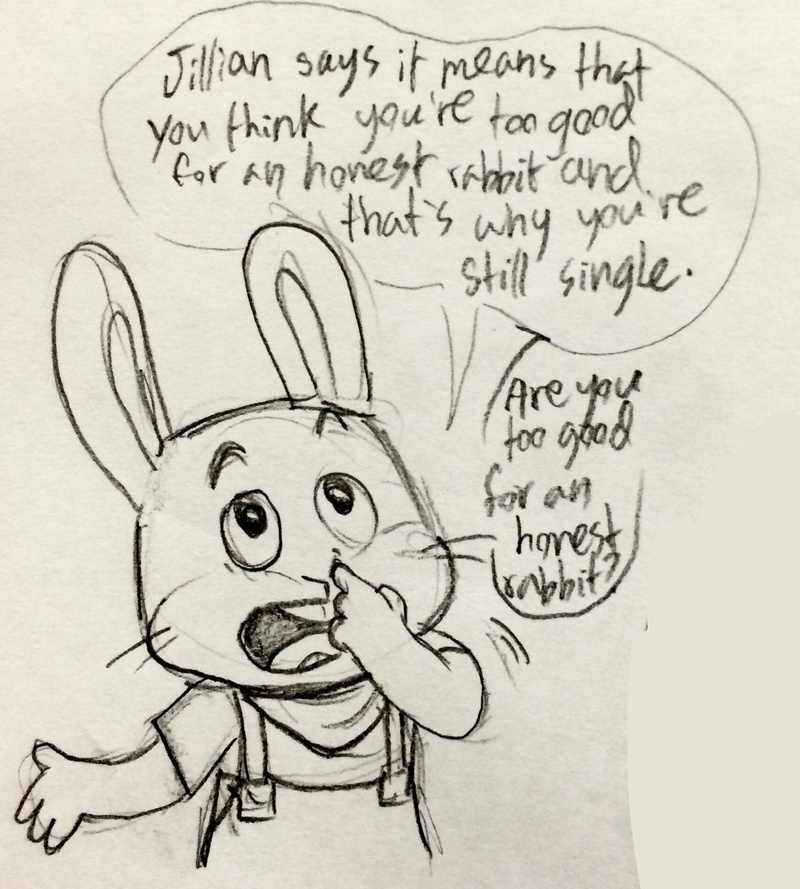 Jillian says it means that
you think you're too good
for an honest rabbit and
that's why you're
still single.
Are you
too good
for an
honest
rabbit?